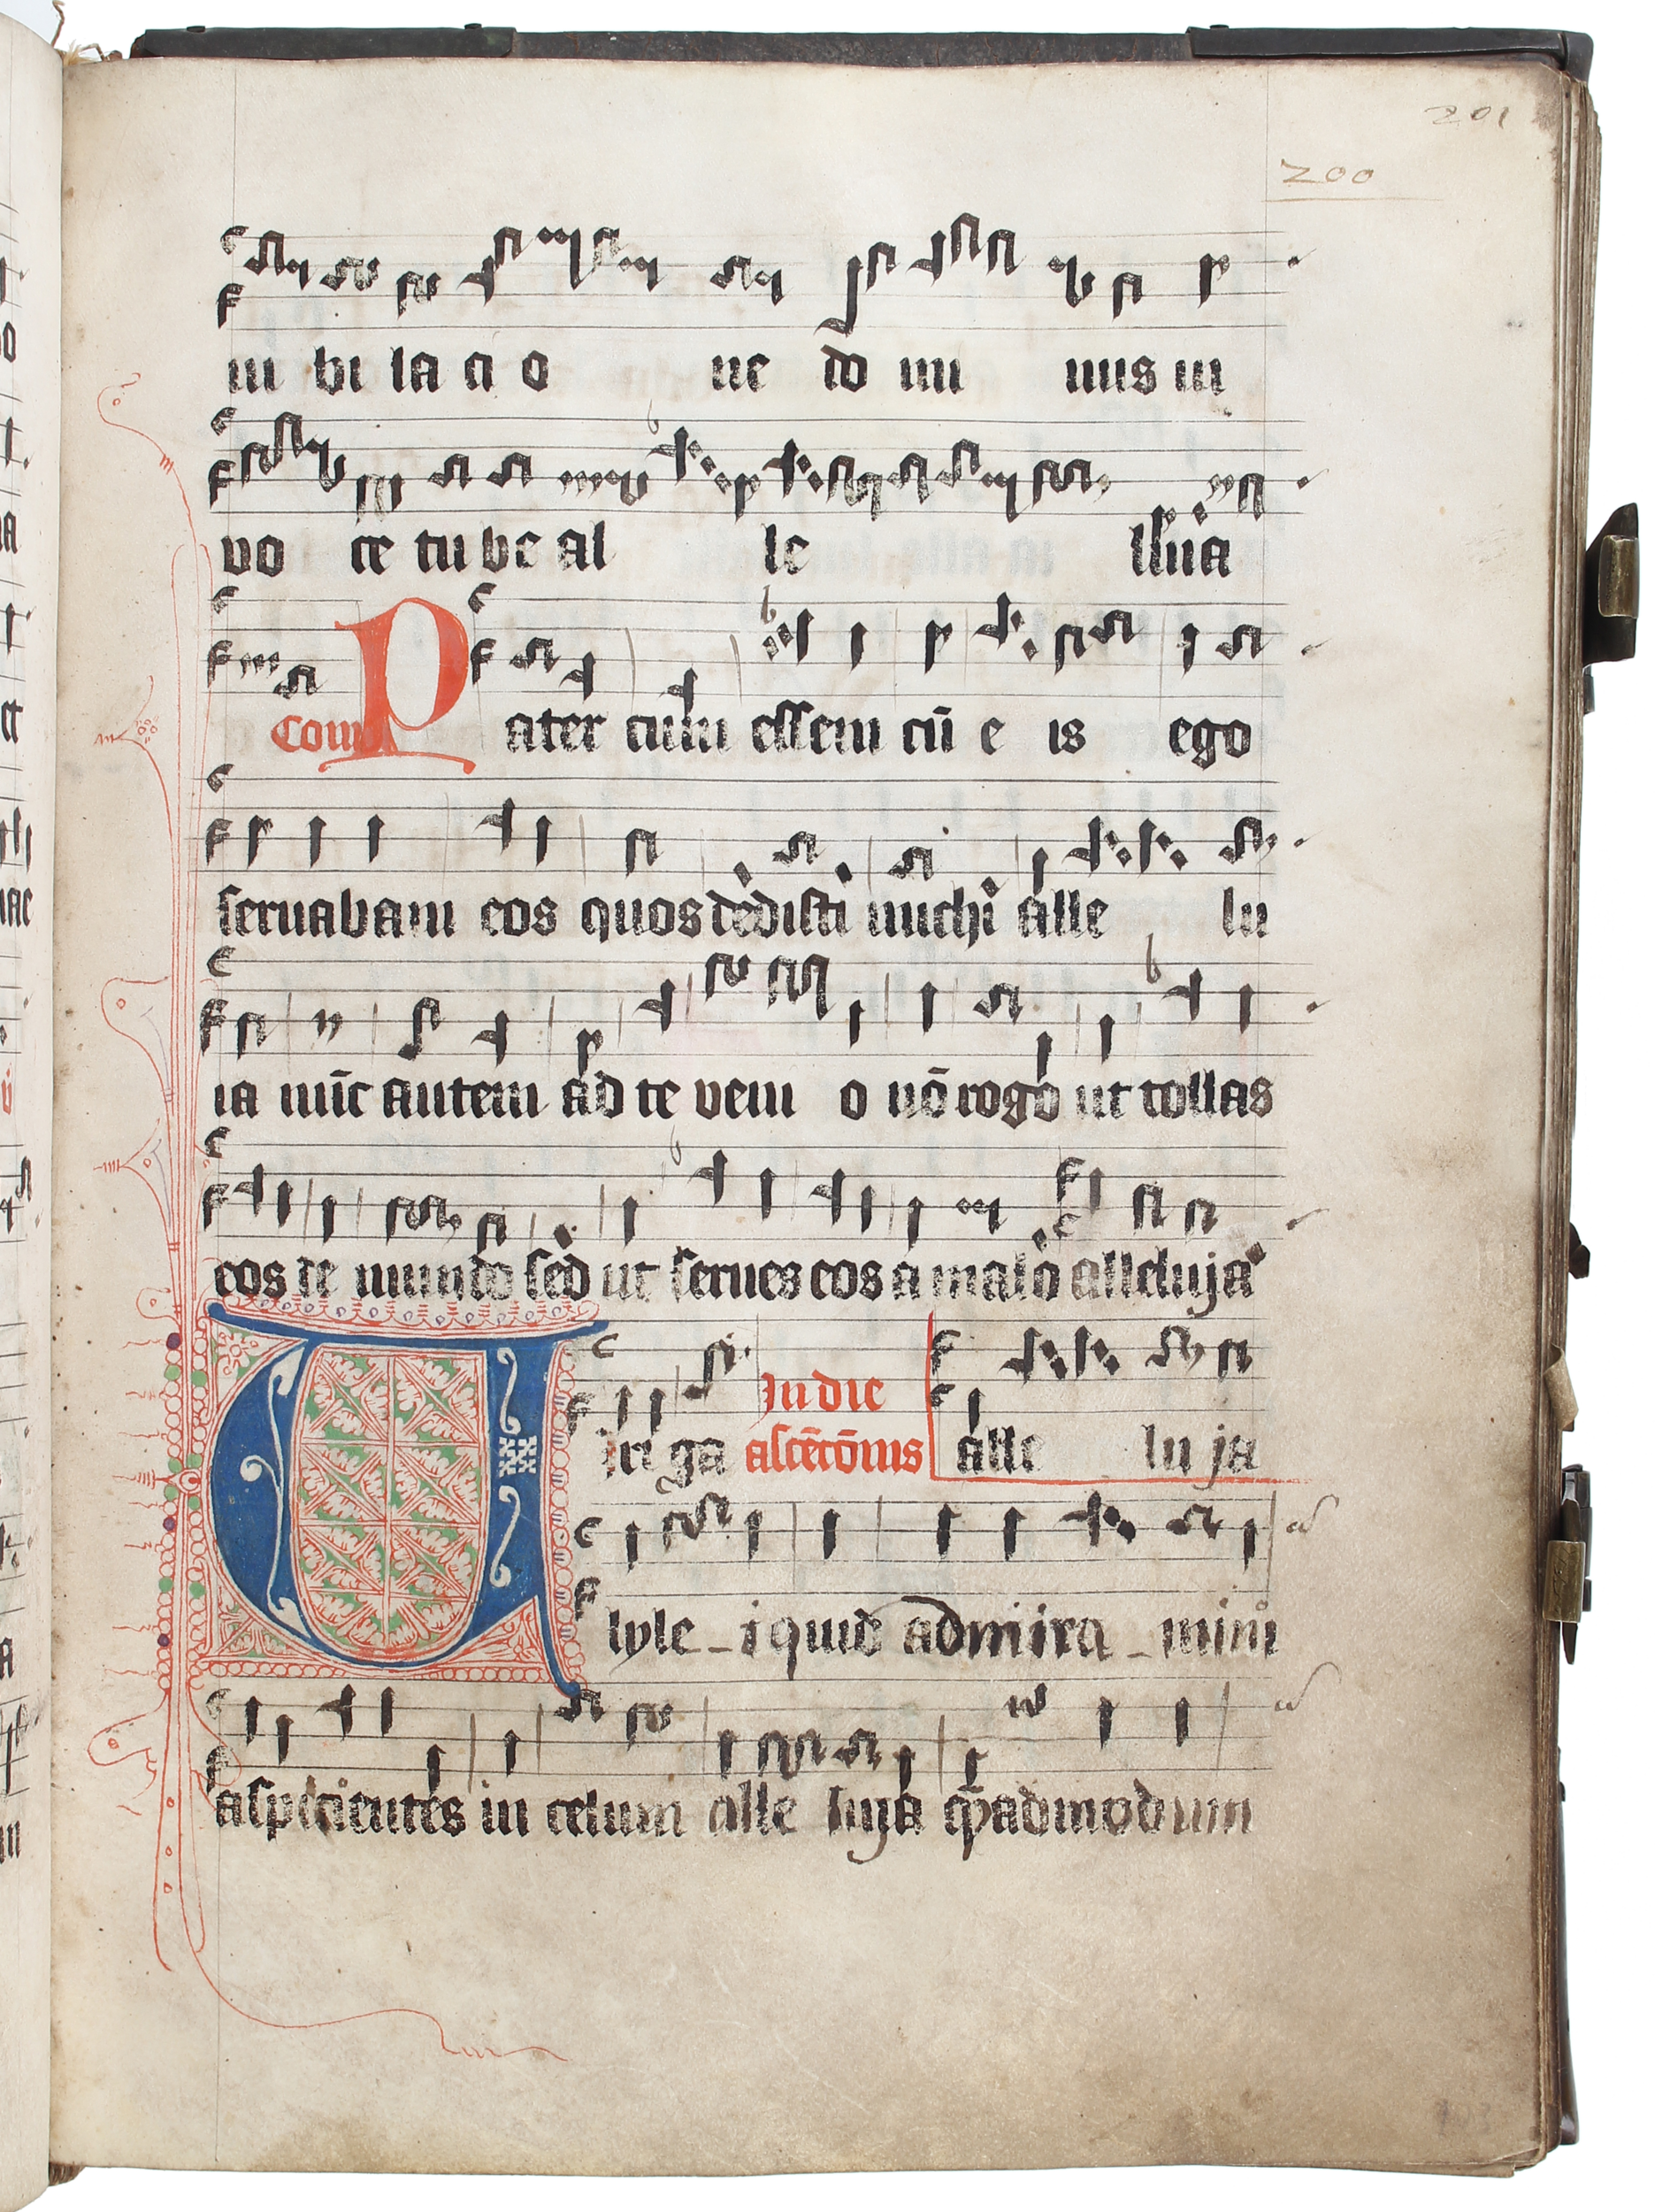 201
200
iu bi la ci o ne do mi nus in
vo ce tu be al le lluia
Com̅ Pater cum essem cū e is ego
seruabam eos quos dedisti michi alle lu
ia nūc autem ad te veni o nō rogo ut tollas
eos de mundo sed ut serues eos a malo alleluja
Uiri ga In die ascēcōnis alle lu ja
lyle - i quid admira - mini
aspicientes in celum alle luja qᷓadmodum